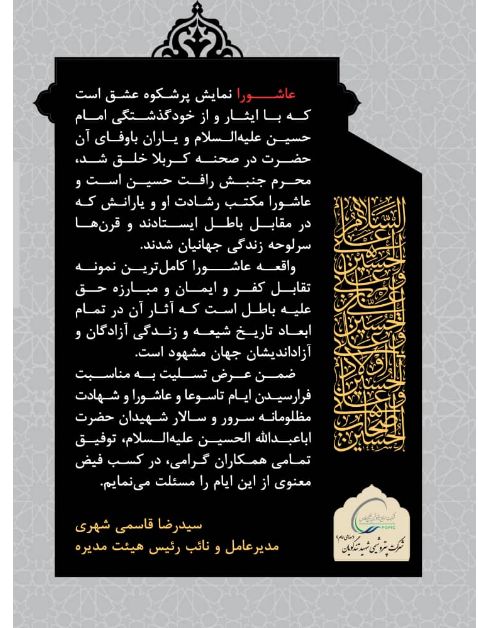 عاشورا نمایش پرشکوه عشق است
که با ایثار و از خودگذشتگی امام
حسین علیه‌السلام و یاران باوفای آن
حضرت در صحنه کربلا خلق شد،
محرم جنبش رافت حسین است و
عاشورا مکتب رشادت او و یارانش که
در مقابل باطل ایستادند و قرن‌ها
سرلوحه زندگی جهانیان شدند.
واقعه عاشورا کامل‌ترین نمونه
تقابل کفر و ایمان و مبارزه حق
علیه باطل است که آثار آن در تمام
ابعاد تاریخ شیعه و زندگی آزادگان و
آزاداندیشان جهان مشهود است.
ضمن عرض تسلیت به مناسبت
فرارسیدن ایام تاسوعا و عاشورا و شهادت
مظلومانه سرور و سالار شهیدان حضرت
اباعبدالله الحسین علیه‌السلام، توفیق
تمامی همکاران گرامی، در کسب فیض
معنوی از این ایام را مسئلت می‌نمایم.
سیدرضا قاسمی شهری
مدیرعامل و نائب رئیس هیئت مدیره
السلام
علی
الحسین
و علی
علی بن
الحسین
و علی
اولاد
الحسین
و علی
اصحاب
الحسین
شرکت پتروشیمی شهید تندگویان